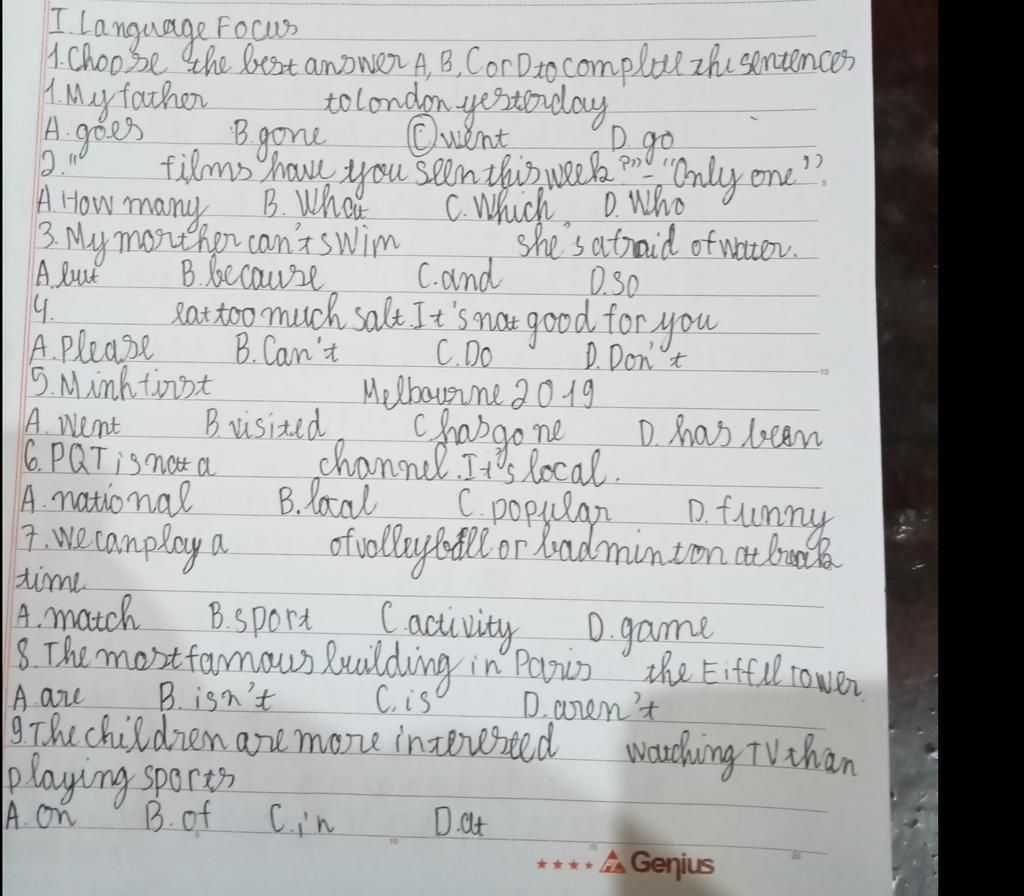 I. Language Focus
1. Choose the best answer A, B, C or D to complete the sentences
1. My father to london yesterday
A. goes B. gone C. went D. go
2. " films have you seen this week?" - "Only one".
A. How many B. What C. Which D. Who
3. My morther can't swim she's afraid of water.
A. but B. because C. and D. so
4. eat too much salt. It's not good for you
A. Please B. Can't C. Do D. Don't
5. Minh first Melbourne 2019
A. went B. visited C. has gone D. has been
6. PQT is not a channel. It's local.
A. national B. local C. popular D. funny
7. We can play a of volleyball or badminton at break
time
A. match B. sport C. activity D. game
8. The most famous building in Paris the Eiffel tower.
A. are B. isn't C. is D. aren't
9. The children are more interested watching TV than
playing sports
A. on B. of C. in D. at
Genius